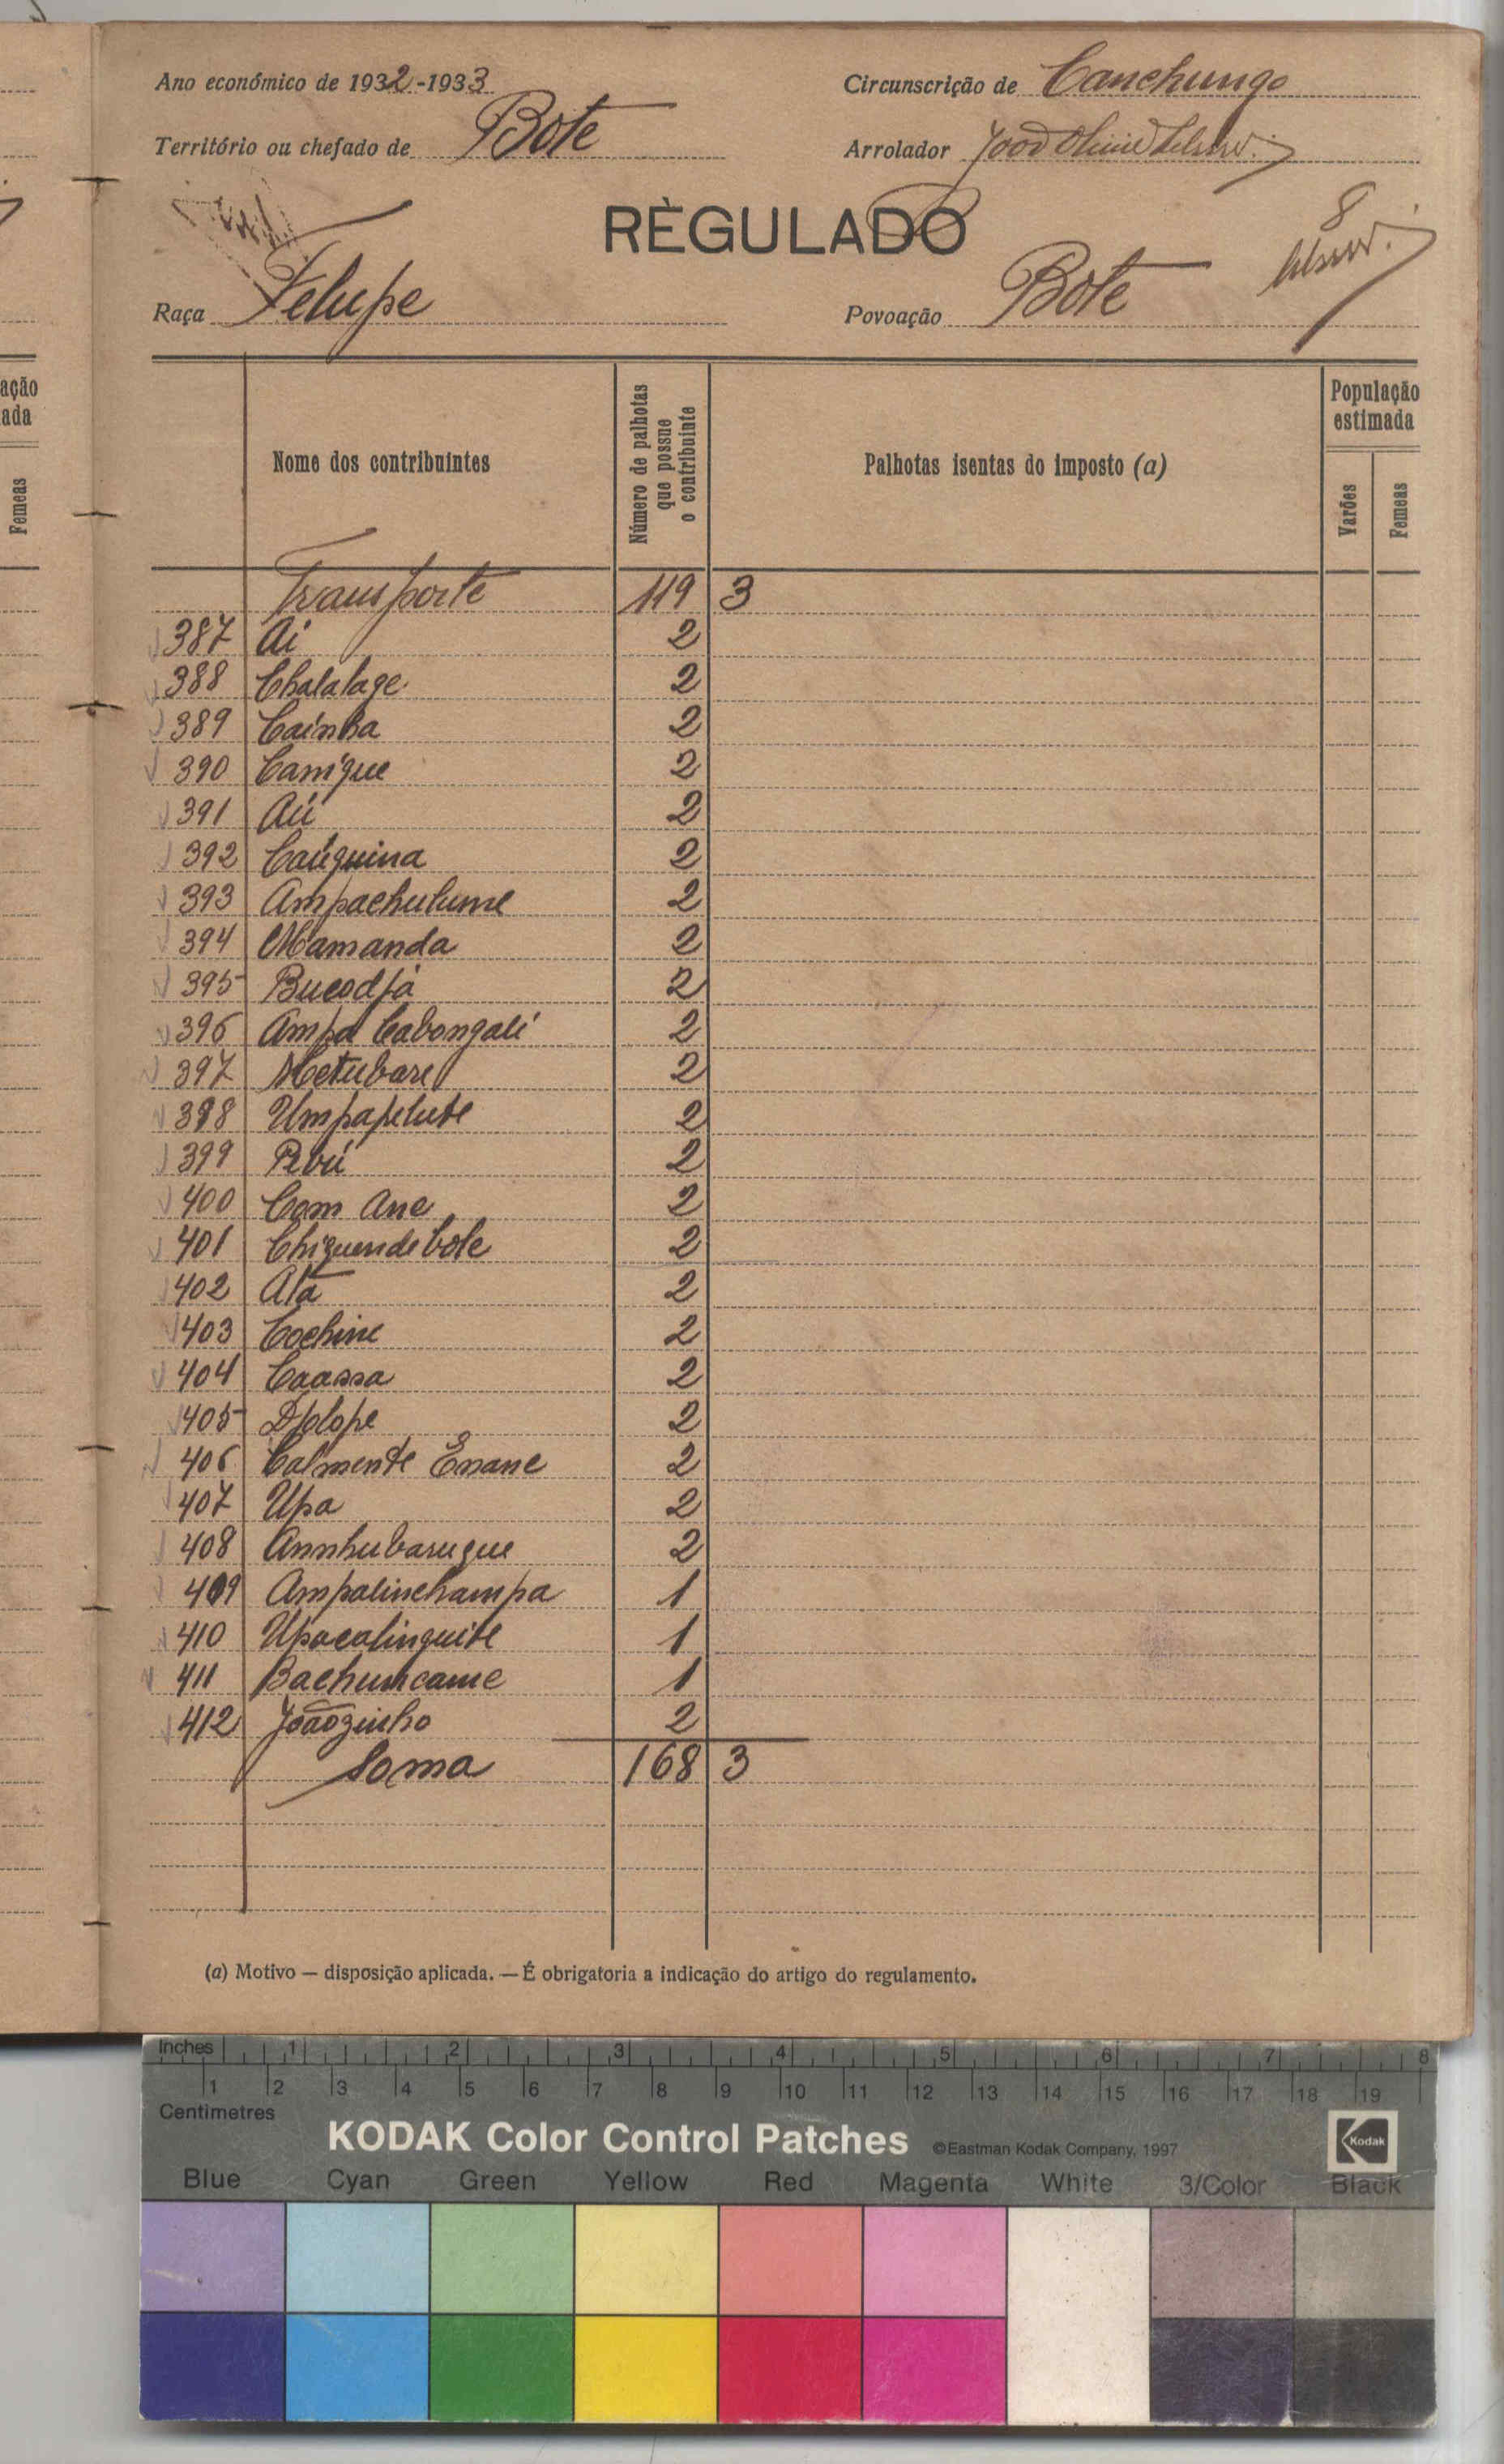 Ano económico de 1932-1933
Circunscrição de Canchungo
Território ou chefado de Bote
Arrolador João
REGULADO
8
Raça Felupe
Povoação Bote
ação
ada
Femeas
Nome dos contribuintes
Número de palhotas
que possue
o contribuinte
Palhotas isentas do imposto (a)
População
estimada
Varões
Femeas
Transporte 119 3
387 Ai 2
388 Chalalage 2
389 Cainha 2
390 Canigue 2
391 Aú 2
392 Caúquina 2
393 Ampachulume 2
394 Mamanda 2
395 Bucodjà 2
396 Ampa Cabongali 2
397 Metubare 2
398 Umpapelute 2
399 Pebú 2
400 Com Ane 2
401 Chiquendebole 2
402 Atá 2
403 Cochine 2
404 Caassa 2
405 Djolope 2
406 Calmente Enane 2
407 Upa 2
408 Annhubaruque 2
409 Ampalinchampa 1
410 Upacalinquite 1
411 Bachumcame 1
412 Joãozinho 2
Soma 168 3
(a) Motivo — disposição aplicada. — É obrigatoria a indicação do artigo do regulamento.
Inches 1 2 3 4 5 6 7 8
1 2 3 4 5 6 7 8 9 10 11 12 13 14 15 16 17 18 19
Centimetres
KODAK Color Control Patches ©Eastman Kodak Company, 1997 Kodak
Blue Cyan Green Yellow Red Magenta White 3/Color Black